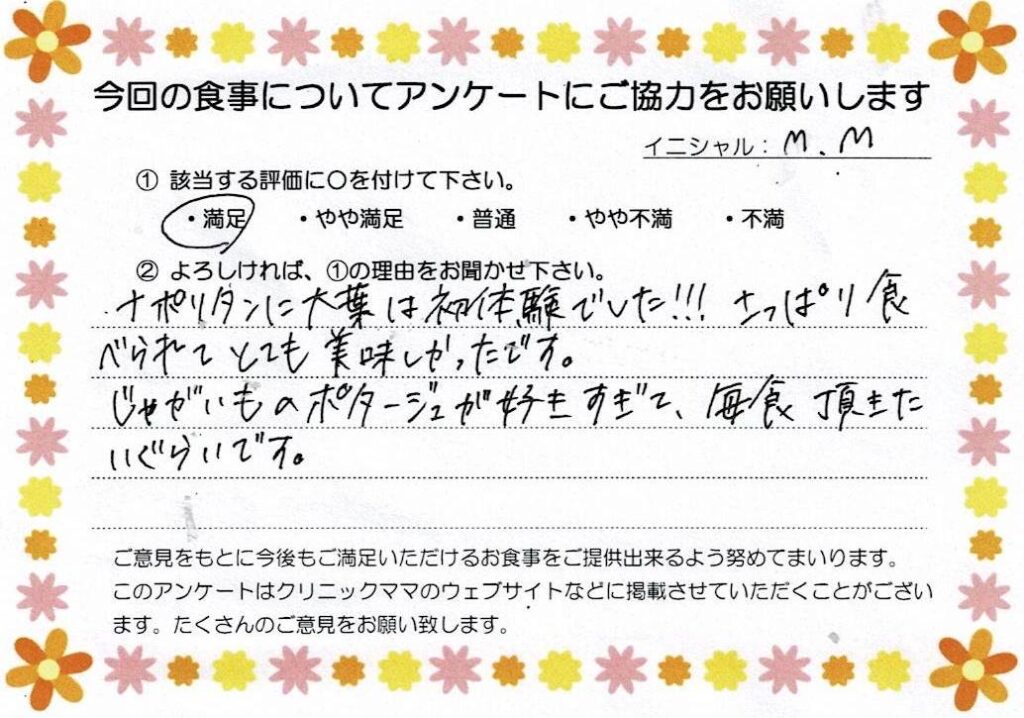 今回の食事についてアンケートにご協力をお願いします
イニシャル：M.M
① 該当する評価に〇を付けて下さい。
・満足 ・やや満足 ・普通 ・やや不満 ・不満
② よろしければ、①の理由をお聞かせ下さい。
ナポリタンに大葉は初体験でした!!! さっぱり食
べられてとても美味しかったです。
じゃがいものポタージュが好きすぎて、毎食頂きた
いぐらいです。
ご意見をもとに今後もご満足いただけるお食事をご提供出来るよう努めてまいります。
このアンケートはクリニックママのウェブサイトなどに掲載させていただくことがござい
ます。たくさんのご意見をお願い致します。